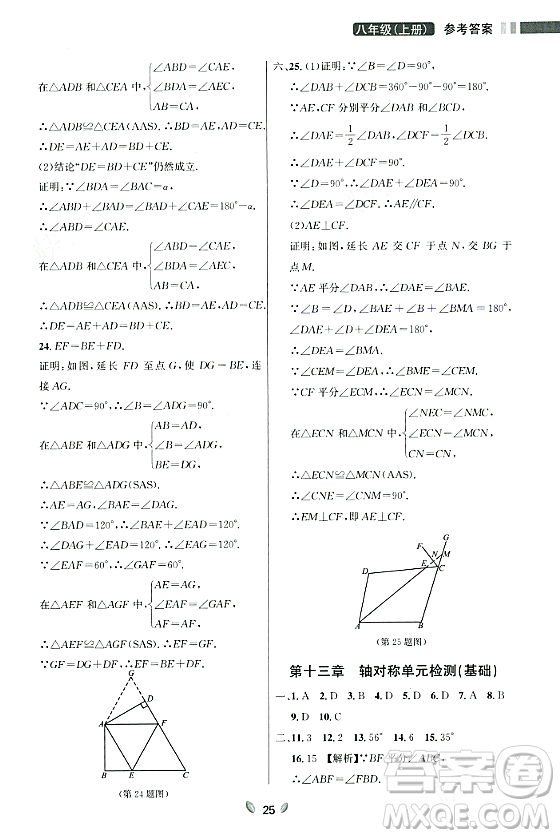 八年级(上册) 参考答案
∠ABD=∠CAE
在△ADB 和△CEA 中, ∠BDA=∠AEC,
AB=CA
∴△ADB≌△CEA (AAS). ∴AE=BD,AD=CE.
∴DE=AE+AD=BD+CE.
(2)结论“DE=BD+CE”仍然成立.
证明:∵∠BDA=∠BAC=α,
∴∠DBA+∠BAD=∠BAD+∠CAE=180°-α.
∴∠CAE=∠ABD.
∠ABD=∠CAE
在△ADB 和△CEA 中, ∠BDA=∠AEC,
AB=CA
∴△ADB≌△CEA (AAS). ∴AE=BD,AD=CE.
∴DE=AE+AD=BD+CE.
24. EF=BE+FD.
证明:如图,延长 FD 至点 G,使 DG=BE,连
接 AG.
∵∠ADC=90°,∴∠B=∠ADG=90°.
AB=AD,
在△ABE 和△ADG 中, ∠B=∠ADG,
BE=DG,
∴△ABE≌△ADG(SAS).
∴AE=AG,∠BAE=∠DAG.
∵∠BAD=120°,∴∠BAE+∠DAE=120°.
∴∠DAG+∠DAE=120°,即∠EAG=120°.
∵∠EAF=60°,∴∠GAF=60°.
AE=AG,
在△AEF 和△AGF 中, ∠EAF=∠GAF,
AF=AF,
∴△AEF≌△AGF(SAS).∴EF=GF.
∵GF=DG+DF=BE+DF,∴EF=BE+DF.
G
D
A F
B E C
(第 24 题图)
六、25. (1)证明:∵∠B=∠D=90°,
∴∠DAB+∠DCB=360°-90°-90°=180°.
∵AE,CF 分别平分∠DAB 和∠BCD,
∴∠DAE=1/2∠DAB,∠DCF=1/2∠DCB.
∴∠DAE+∠DCF=90°.
(2)AE⊥CF.
证明:如图,延长 AE 交 CF 于点 N,交 BG 于
点 M.
∵AE 平分∠DAB,∴∠DAE=∠BAE.
∵∠B=∠D,∠BAE+∠B+∠BMA=180°,
∠DAE+∠D+∠DEA=180°,
∴∠DEA=∠BMA.
∵∠DEA=∠MEC,∴∠BME=∠MEC.
∵CF 平分∠ECM,∴∠ECN=∠MCN.
∠NEC=∠NMC,
在△ECN 和△MCN 中, ∠ECN=∠MCN,
CN=CN,
∴△ECN≌△MCN (AAS).
∴∠CNE=∠CNM=90°.
∴EM⊥CF,即 AE⊥CF.
G
F N M
D E C
A B
(第 25 题图)
第十三章 轴对称单元检测(基础)
一、1. A 2. D 3. C 4. D 5. C 6. A 7. C 8. B
9. D 10. C
二、11. 3 12. 2 13. 56° 14. 6 15. 35°
16. 15 【解析】∵BF 平分∠ABC,
∴∠ABF=∠CBF.
25